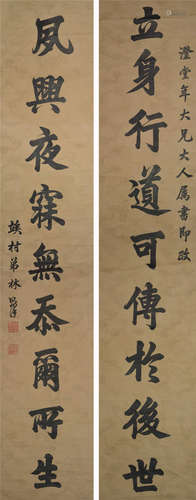 澄堂年大兄大人属書即政
立身行道可傳於後世
夙興夜寐無忝爾所生
竢村弟林